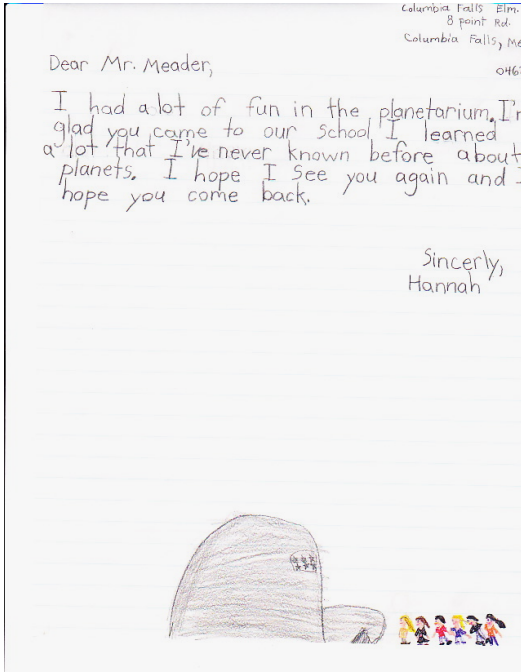 Columbia Falls Elm.
8 point Rd.
Columbia Falls, Me
Dear Mr. Meader,
I had a lot of fun in the planetarium. I'm
glad you came to our school I learned
a lot that I've never known before about
planets. I hope I see you again and I
hope you come back.
Sincerly,
Hannah